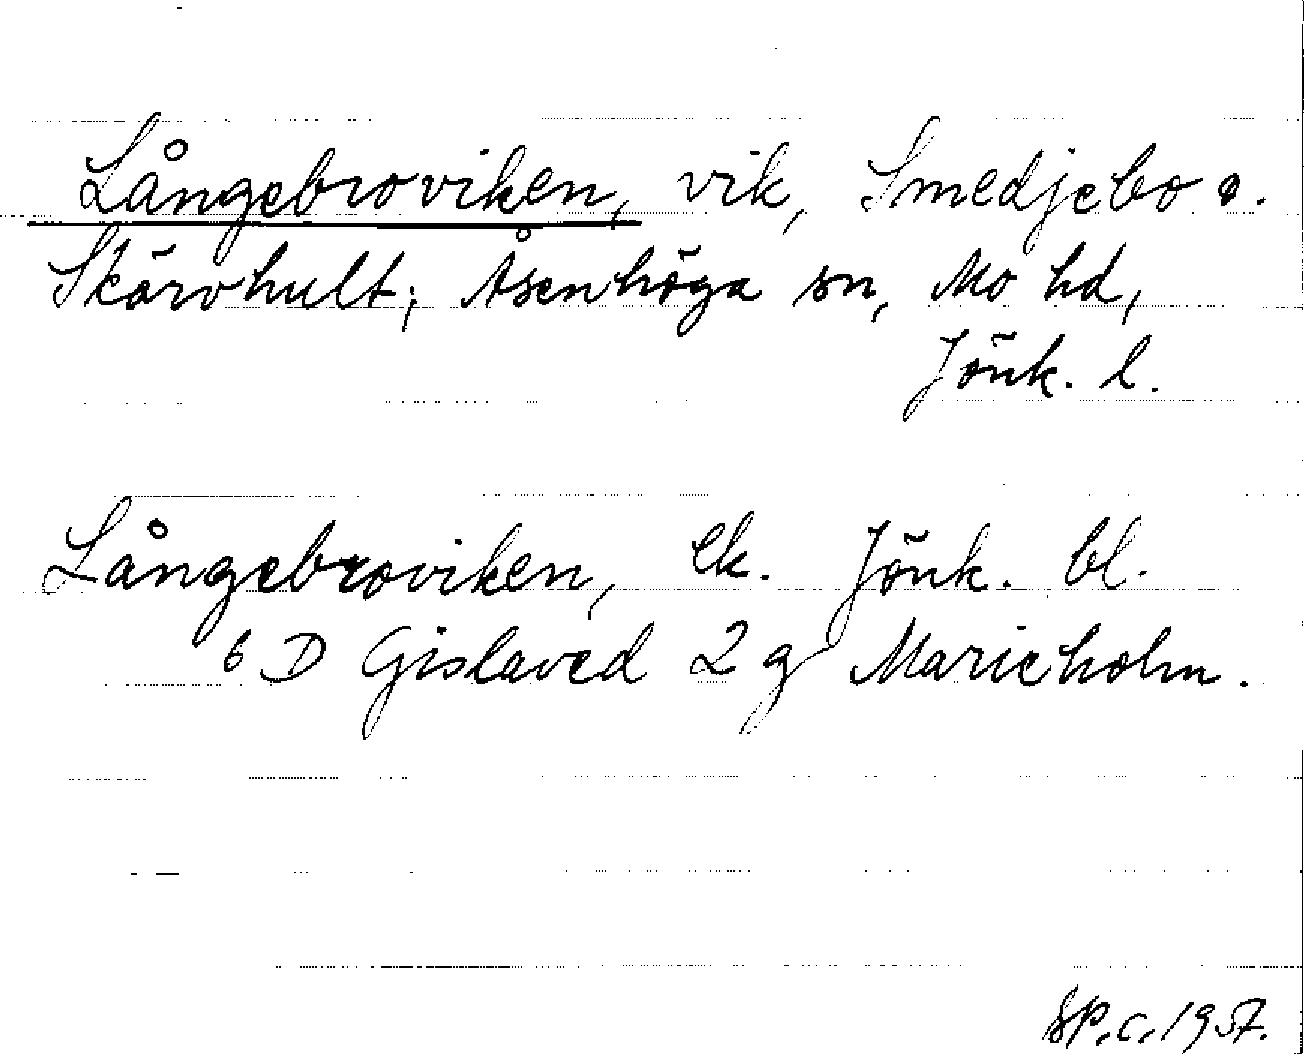 Långebroviken, vik, Smedjebo o.
Skärvhult; Åsenhöga sn, Mo hd,
Jönk. l.
Långebroviken, ek. Jönk. bl.
6 D Gislaved 2 g Marieholm.
SP. c. 1957.